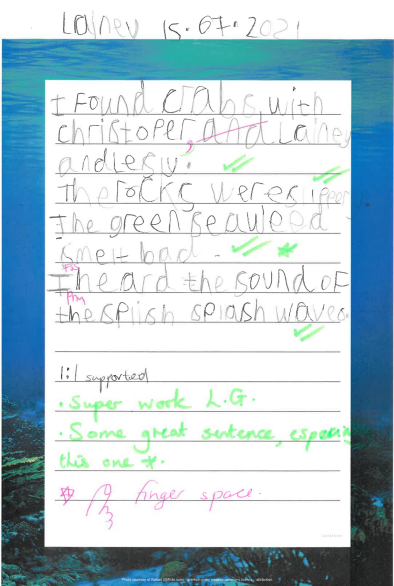 Lainey 15.07.2021
I Found crabs with
christoper, and Lainey
and Lesly.
The rocks were slippery
The green seaweed
smelt bad.
I heard the sound of
the splish splash waves.
1:1 supported
. Super work L.G.
. Some great sentence, especially
this one *.
finger space.